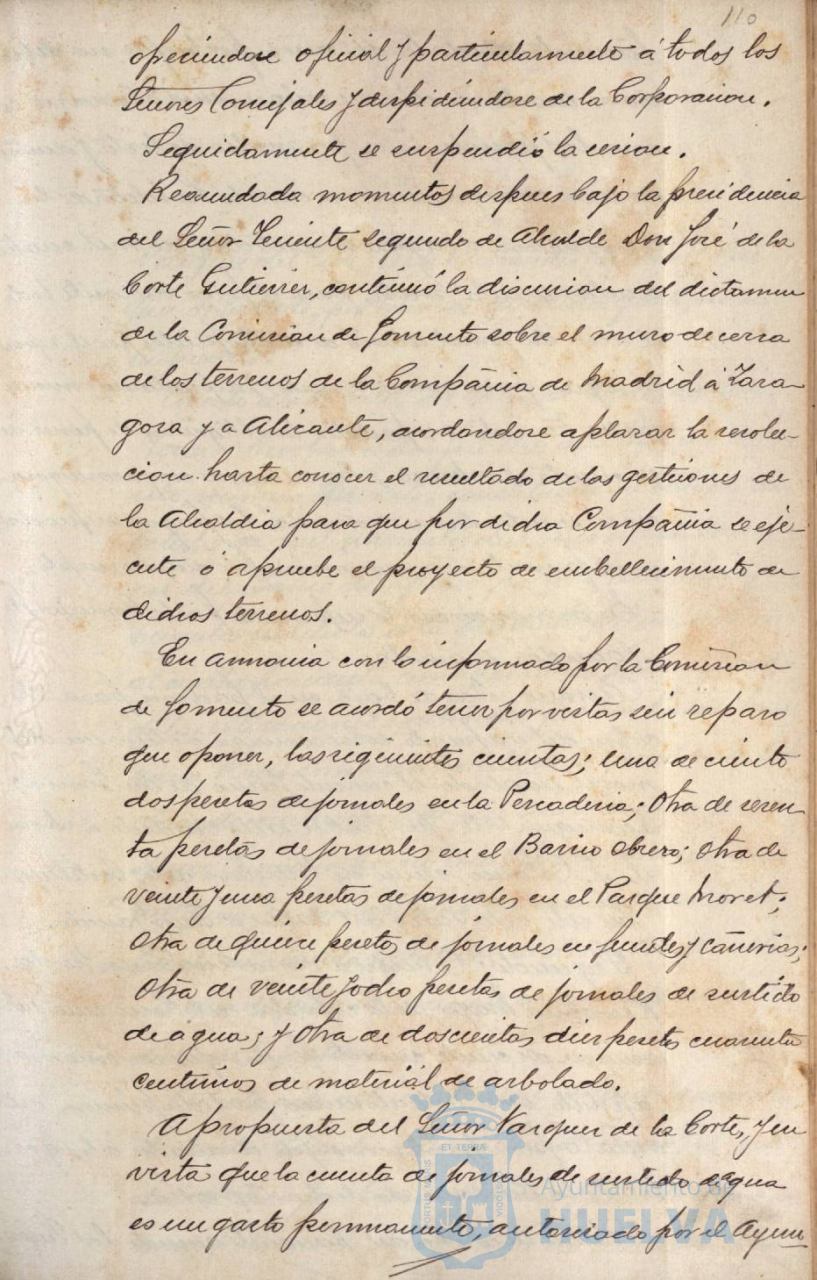 110
ofreciendose oficial y particularmente á todos los
Señores Concejales y despidiendose de la Corporacion.
Seguidamente se suspendió la sesion.
Reanudada momentos despues bajo la presidencia
del Señor Teniente segundo de Alcalde Don José de la
Corte Gutierrez, continuó la discusion del dictamen
de la Comision de Fomento sobre el muro de cerra
de los terrenos de la Compañia de Madrid á Zara-
goza y a Alicante, acordandose aplazar la resolu-
cion hasta conocer el resultado de las gestiones de
la Alcaldia para que por dicha Compañia se eje-
cute ó apruebe el proyecto de embellecimiento de
dichos terrenos.
En armonia con lo informado por la Comision
de Fomento se acordó tener por vistas sin reparo
que oponer, las siguientes cuentas; una de ciento
dos pesetas de jornales en la Pescaderia; otra de sesen
ta pesetas de jornales en el Barrio Obrero; otra de
veinte y una pesetas de jornales en el Parque Moret;
otra de quince pesetas de jornales en fuentes y cañerias;
otra de veinte y ocho pesetas de jornales de surtido
de agua; y otra de doscientas diez pesetas cuarenta
centimos de material de arbolado.
A propuesta del Señor Vazquez de la Corte, y en
vista que la cuenta de jornales de surtido de agua
es un gasto permanente, autorizado por el Ayun
Ayuntamiento de
HUELVA